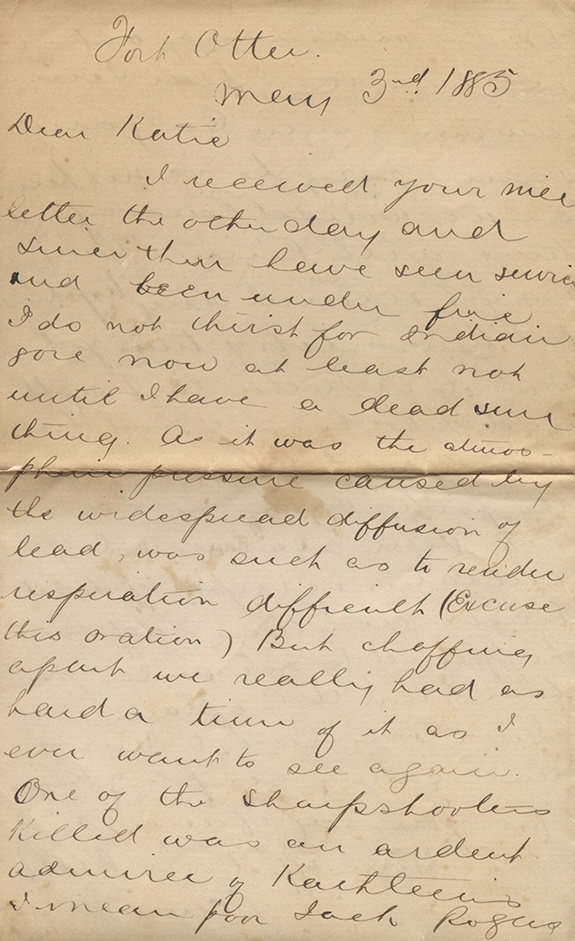 Fort Otter.
May 3rd 1885
Dear Katie
I received your nice
letter the other day and
since then have seen service
and been under fire
I do not thirst for Indian
gore now at least not
until I have a dead sure
thing. As it was the atmos-
pheric pressure caused by
the widespread diffusion of
lead, was such as to render
respiration difficult (Excuse
this oration) But chaffing
apart we really had as
hard a time of it as I
ever want to see again.
One of the sharpshooters
killed was an ardent
admirer of Kathleens
I mean poor Jack Rogers